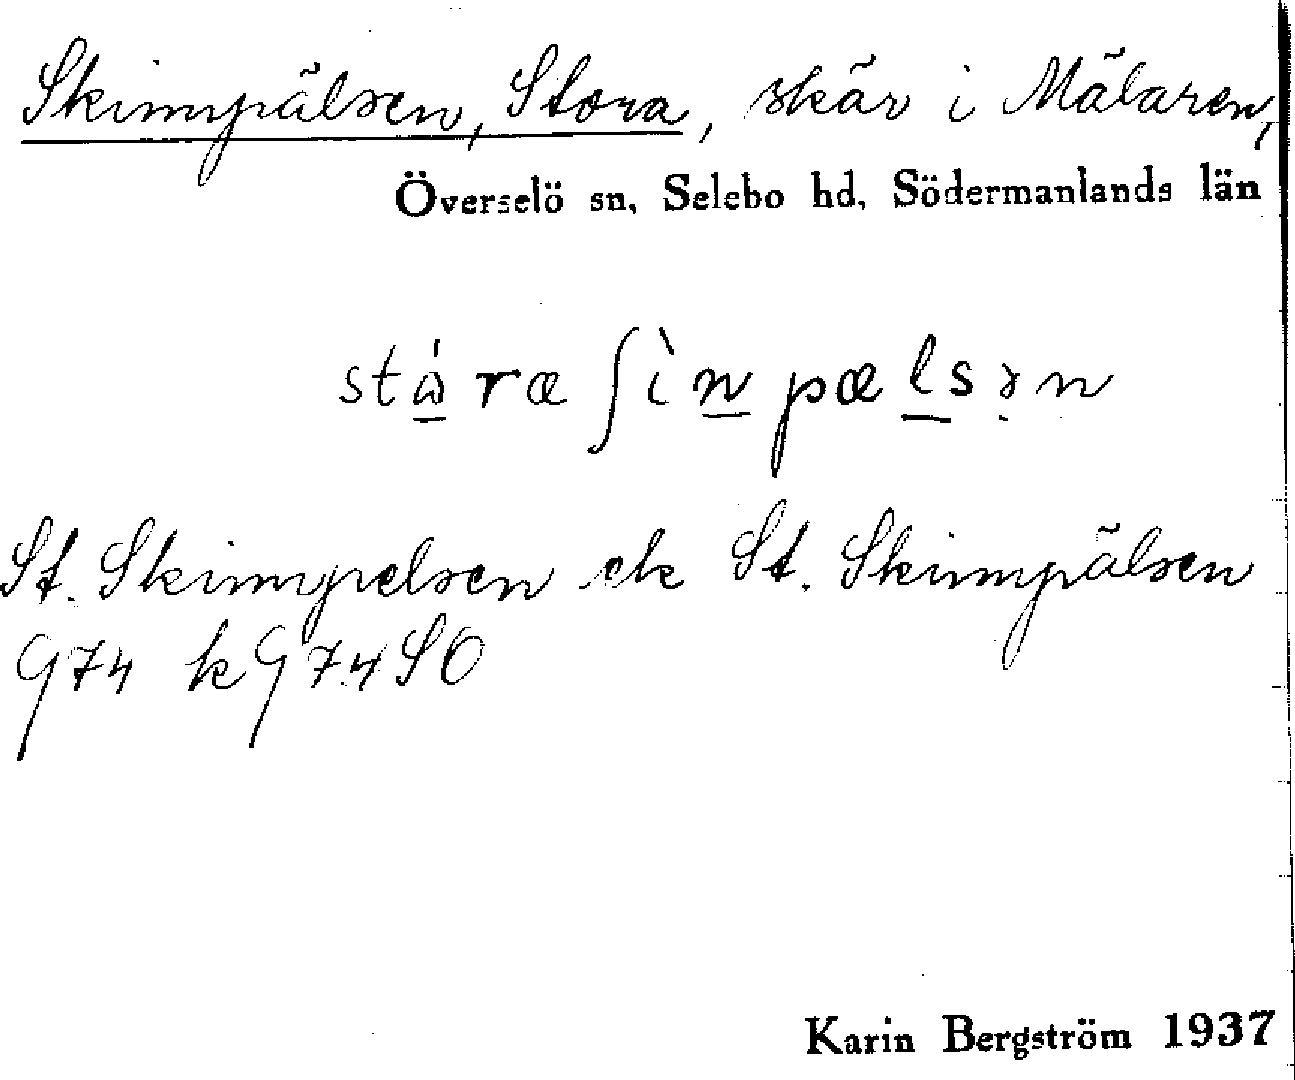 Skimpälsen, Stora, skär i Mälaren,
Överselö sn, Selebo hd, Södermanlands län
stώra ʃìn pælsən
St. Skimpelsen ek St. Skimpälsen
G74 kG74SO
Karin Bergström 1937